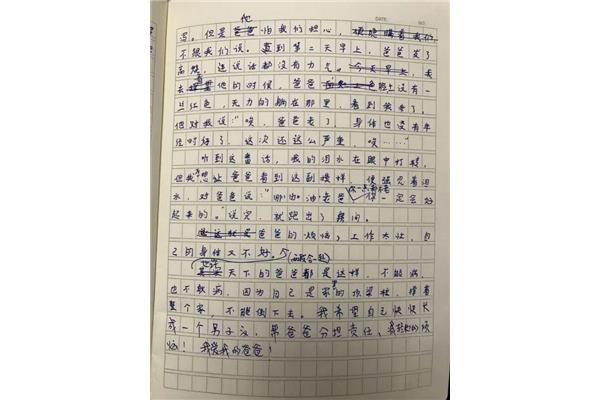 DATE. NO.
他
湿。但是爸爸怕我们担心,硬是瞒着我们,
不跟我们说。直到第二天早上,爸爸发了
高烧,连说话都没有力气。今天早上,我
去看他的时候,爸爸脸上没有一
丝红色,无力的躺在那里,看到我来了,
他对我说:“唉,爸爸老了,身体也没有年
轻时好了,这次还这么严重,唉……”
听到这番话,我的泪水在眼中打转,
但我不想让爸爸看到这副模样,便强忍着泪
你一点都不老
水,对爸爸说:“哪有,爸爸,你一定会好
起来的。”说完,就跑出了房间。
这就是爸爸的烦恼,工作太忙,自
己的身体又不好。
也许
天下的爸爸都是这样,不能病,
也不敢病,因为自己是家的顶梁柱,撑着
里
整个家,不能倒下去。我希望自己快快长
成一个男子汉,帮爸爸分担责任,的烦
恼!我爱我的爸爸!